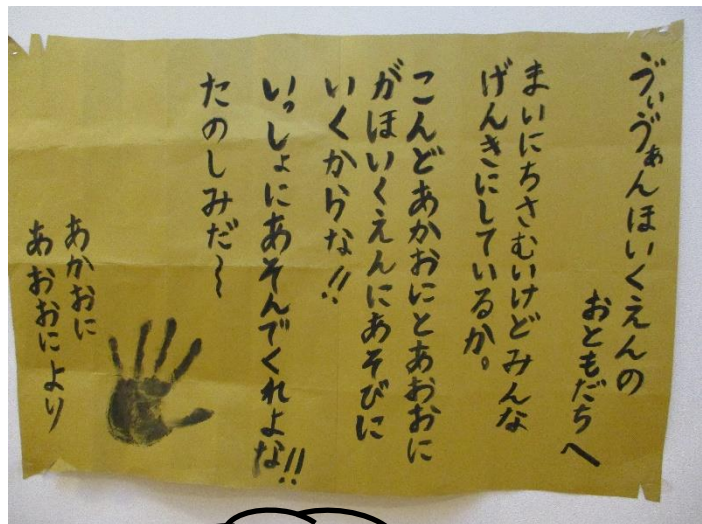 ゔぃゔぁんほいくえんの
おともだちへ
まいにちさむいけどみんな
げんきにしているか。
こんどあかおにとあおおに
がほいくえんにあそびに
いくからな!!
いっしょにあそんでくれよな!!
たのしみだ〜
あかおに
あおおにより